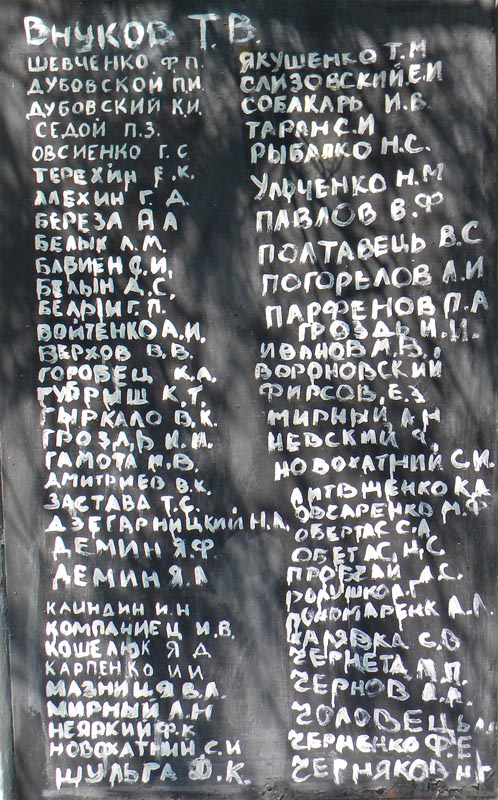 Внуков Т.В.
ШЕВЧЕНКО Ф.П.
ДУБОВСКОЙ П.И.
ДУБОВСКИЙ К.И.
СЕДОЙ П.З.
ОВСИЕНКО Г.С
ТЕРЕХИН Е.К.
АЛЕХИН Г.Д.
БЕРЕЗА А А
БЕЛЫК Л.М.
БАБИЕН С.И.
БЕЛЫЙ Г.П.
ВОЙТЕНКО А.И.
ВЕРХОВ В.В.
ГОРОБЕЦ К.А.
ГУБРИШ К.Т.
ГЫРКАЛО В.К.
ГРОЗДЬ И.И.
ГАМОТА М.В.
ДМИТРИЕВ В.К.
ЗАСТАВА Т.С.
ДЗЕГАРНИЦКИЙ Н.А.
ДЕМИН Я.Ф
ДЕМИН Я.А
КАИНДИН И.Н
КОМПАНИЕЦ И.В.
КОШЕЛЮК Я Д
КАРПЕНКО И И
МАЗНИЦЯ В.Л.
МИРНЫЙ Л.Н
НЕЯРКИЙ Ф.К
НОВОХАТНИЙ С.И
ШУЛЬГА Ф.К.
ЯКУШЕНКО Т.Н
СЛИЗОВСКИЙ Е.И
СОБАКАРЬ И.В
ТАРАН С.И
РЫБАЛКО Н.С.
УЛЬЧЕНКО Н.М
ПАВЛОВ В.Ф
ПОЛТАВЕЦЬ В.С
ПОГОРЕЛОВ А.И
ПАРФЕНОВ П.А
ГРОЗДЬ И.И.
ИВАНОВ М.В.
ВОРОНОВСКИЙ
ФИРСОВ, Е.З
МИРНЫЙ Л Н
НЕВСКИЙ
НОВОХАТНИЙ С.И.
ЛИТВИНЕНКО К.А
ОВСАРЕНКО М.Ф
ОБЕРТАС С.А
ОБЕТАС, Н,С
А.С.
ПОНОМАРЕНК А.Л
ХАЛЯВКА С.В
ЧЕРНЕТА П.П.
ЧЕРНОВ А.А.
ЧОЛОВЕЦЬ
ЧЕРНЕНКО Ф.Е
ЧЕРНЯКОВ Н.Г